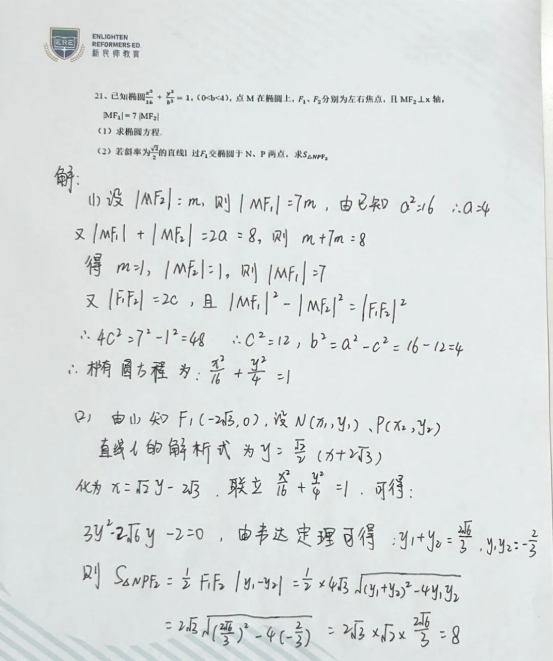 ENLIGHTEN
REFORMERS ED
新民师教育
21、已知椭圆x²/16 + y²/b² = 1,(0<b<4),点 M 在椭圆上,F₁、F₂分别为左右焦点,且 MF₂⊥x 轴,
|MF₁| = 7|MF₂|
(1)求椭圆方程.
(2)若斜率为√2/2的直线l 过F₁交椭圆于 N、P 两点,求S△NPF₂
解:
(1) 设 |MF₂| = m, 则 |MF₁| = 7m , 由已知 a²=16 ∴a=4
又 |MF₁| + |MF₂| = 2a = 8, 则 m+7m=8
得 m=1, |MF₂|=1, 则 |MF₁|=7
又 |F₁F₂| = 2c , 且 |MF₁|² - |MF₂|² = |F₁F₂|²
∴ 4c²=7²-1²=48 ∴c²=12, b²=a²-c²=16-12=4
∴ 椭圆方程为: x²/16 + y²/4 = 1
(2) 由(1)知 F₁(-2√3,0), 设 N(x₁,y₁)、P(x₂,y₂)
直线l的解析式为 y= √2/2 (x+2√3)
化为 x=√2y-2√3 . 联立 x²/16 + y²/4 =1 . 可得:
3y²-2√6y-2=0 , 由韦达定理可得 : y₁+y₂= 2√6/3 , y₁y₂=-2/3
则 S△NPF₂ = 1/2 F₁F₂ |y₁-y₂| = 1/2 × 4√3 √((y₁+y₂)²-4y₁y₂)
= 2√3 √((2√6/3)²-4(-2/3)) = 2√3 × √2 × 2√6/3 = 8